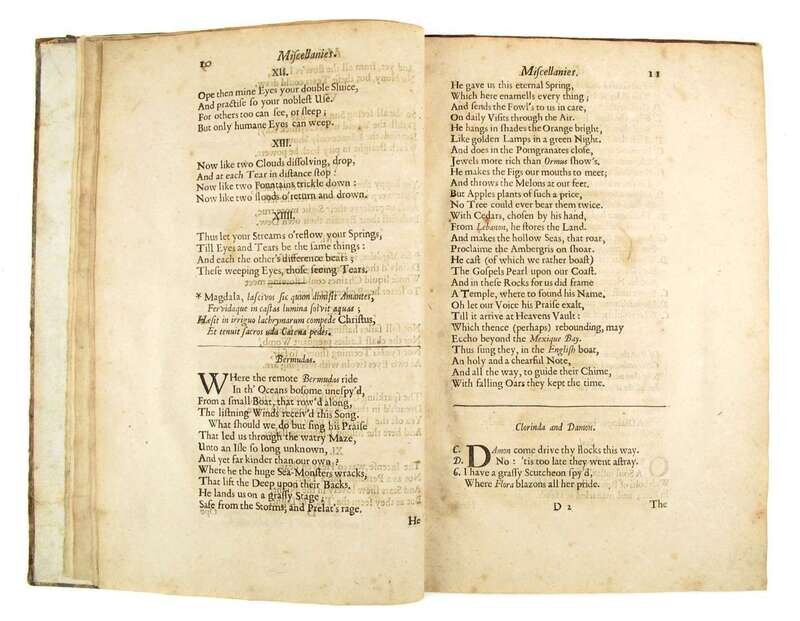 10
Miſcellanies.
XII.
Ope then mine Eyes your double Sluice,
And practiſe ſo your nobleſt Uſe.
For others too can ſee, or ſleep;
But only humane Eyes can weep.
XIII.
Now like two Clouds diſſolving, drop,
And at each Tear in diſtance ſtop:
Now like two Fountains trickle down:
Now like two floods o'return and drown.
XIIII.
Thus let your Streams o'reflow your Springs,
Till Eyes and Tears be the ſame things:
And each the other's difference bears;
Theſe weeping Eyes, thoſe ſeeing Tears.
* Magdala, laſcivos ſic quum dimiſit Amantes,
Fervidaque in caſtas lumina ſolvit aquas;
Hæſit in irriguo lachrymarum compede Chriſtus,
Et tenuit ſacros uda Catena pedes.
Bermudas.
WHere the remote Bermudas ride
In th' Oceans boſome uneſpy'd,
From a ſmall Boat, that row'd along,
The liſtning Winds receiv'd this Song.
What ſhould we do but ſing his Praiſe
That led us through the watry Maze,
Unto an Iſle ſo long unknown,
And yet far kinder than our own?
Where he the huge Sea-Monſters wracks,
That lift the Deep upon their Backs.
He lands us on a graſſy Stage;
Safe from the Storms, and Prelat's rage.
He
Miſcellanies.
11
He gave us this eternal Spring,
Which here enamells every thing;
And ſends the Fowl's to us in care,
On daily Viſits through the Air.
He hangs in ſhades the Orange bright,
Like golden Lamps in a green Night.
And does in the Pomgranates cloſe,
Jewels more rich than Ormus ſhow's.
He makes the Figs our mouths to meet;
And throws the Melons at our feet.
But Apples plants of ſuch a price,
No Tree could ever bear them twice.
With Cedars, choſen by his hand,
From Lebanon, he ſtores the Land.
And makes the hollow Seas, that roar,
Proclaime the Ambergris on ſhoar.
He caſt (of which we rather boaſt)
The Goſpels Pearl upon our Coaſt.
And in theſe Rocks for us did frame
A Temple, where to ſound his Name.
Oh let our Voice his Praiſe exalt,
Till it arrive at Heavens Vault:
Which thence (perhaps) rebounding, may
Eccho beyond the Mexique Bay.
Thus ſung they, in the Engliſh boat,
An holy and a chearful Note,
And all the way, to guide their Chime,
With falling Oars they kept the time.
Clorinda and Damon.
C. DAmon come drive thy flocks this way.
D. No: 'tis too late they went aſtray.
C. I have a graſſy Scutcheon ſpy'd,
Where Flora blazons all her pride.
D 2
The